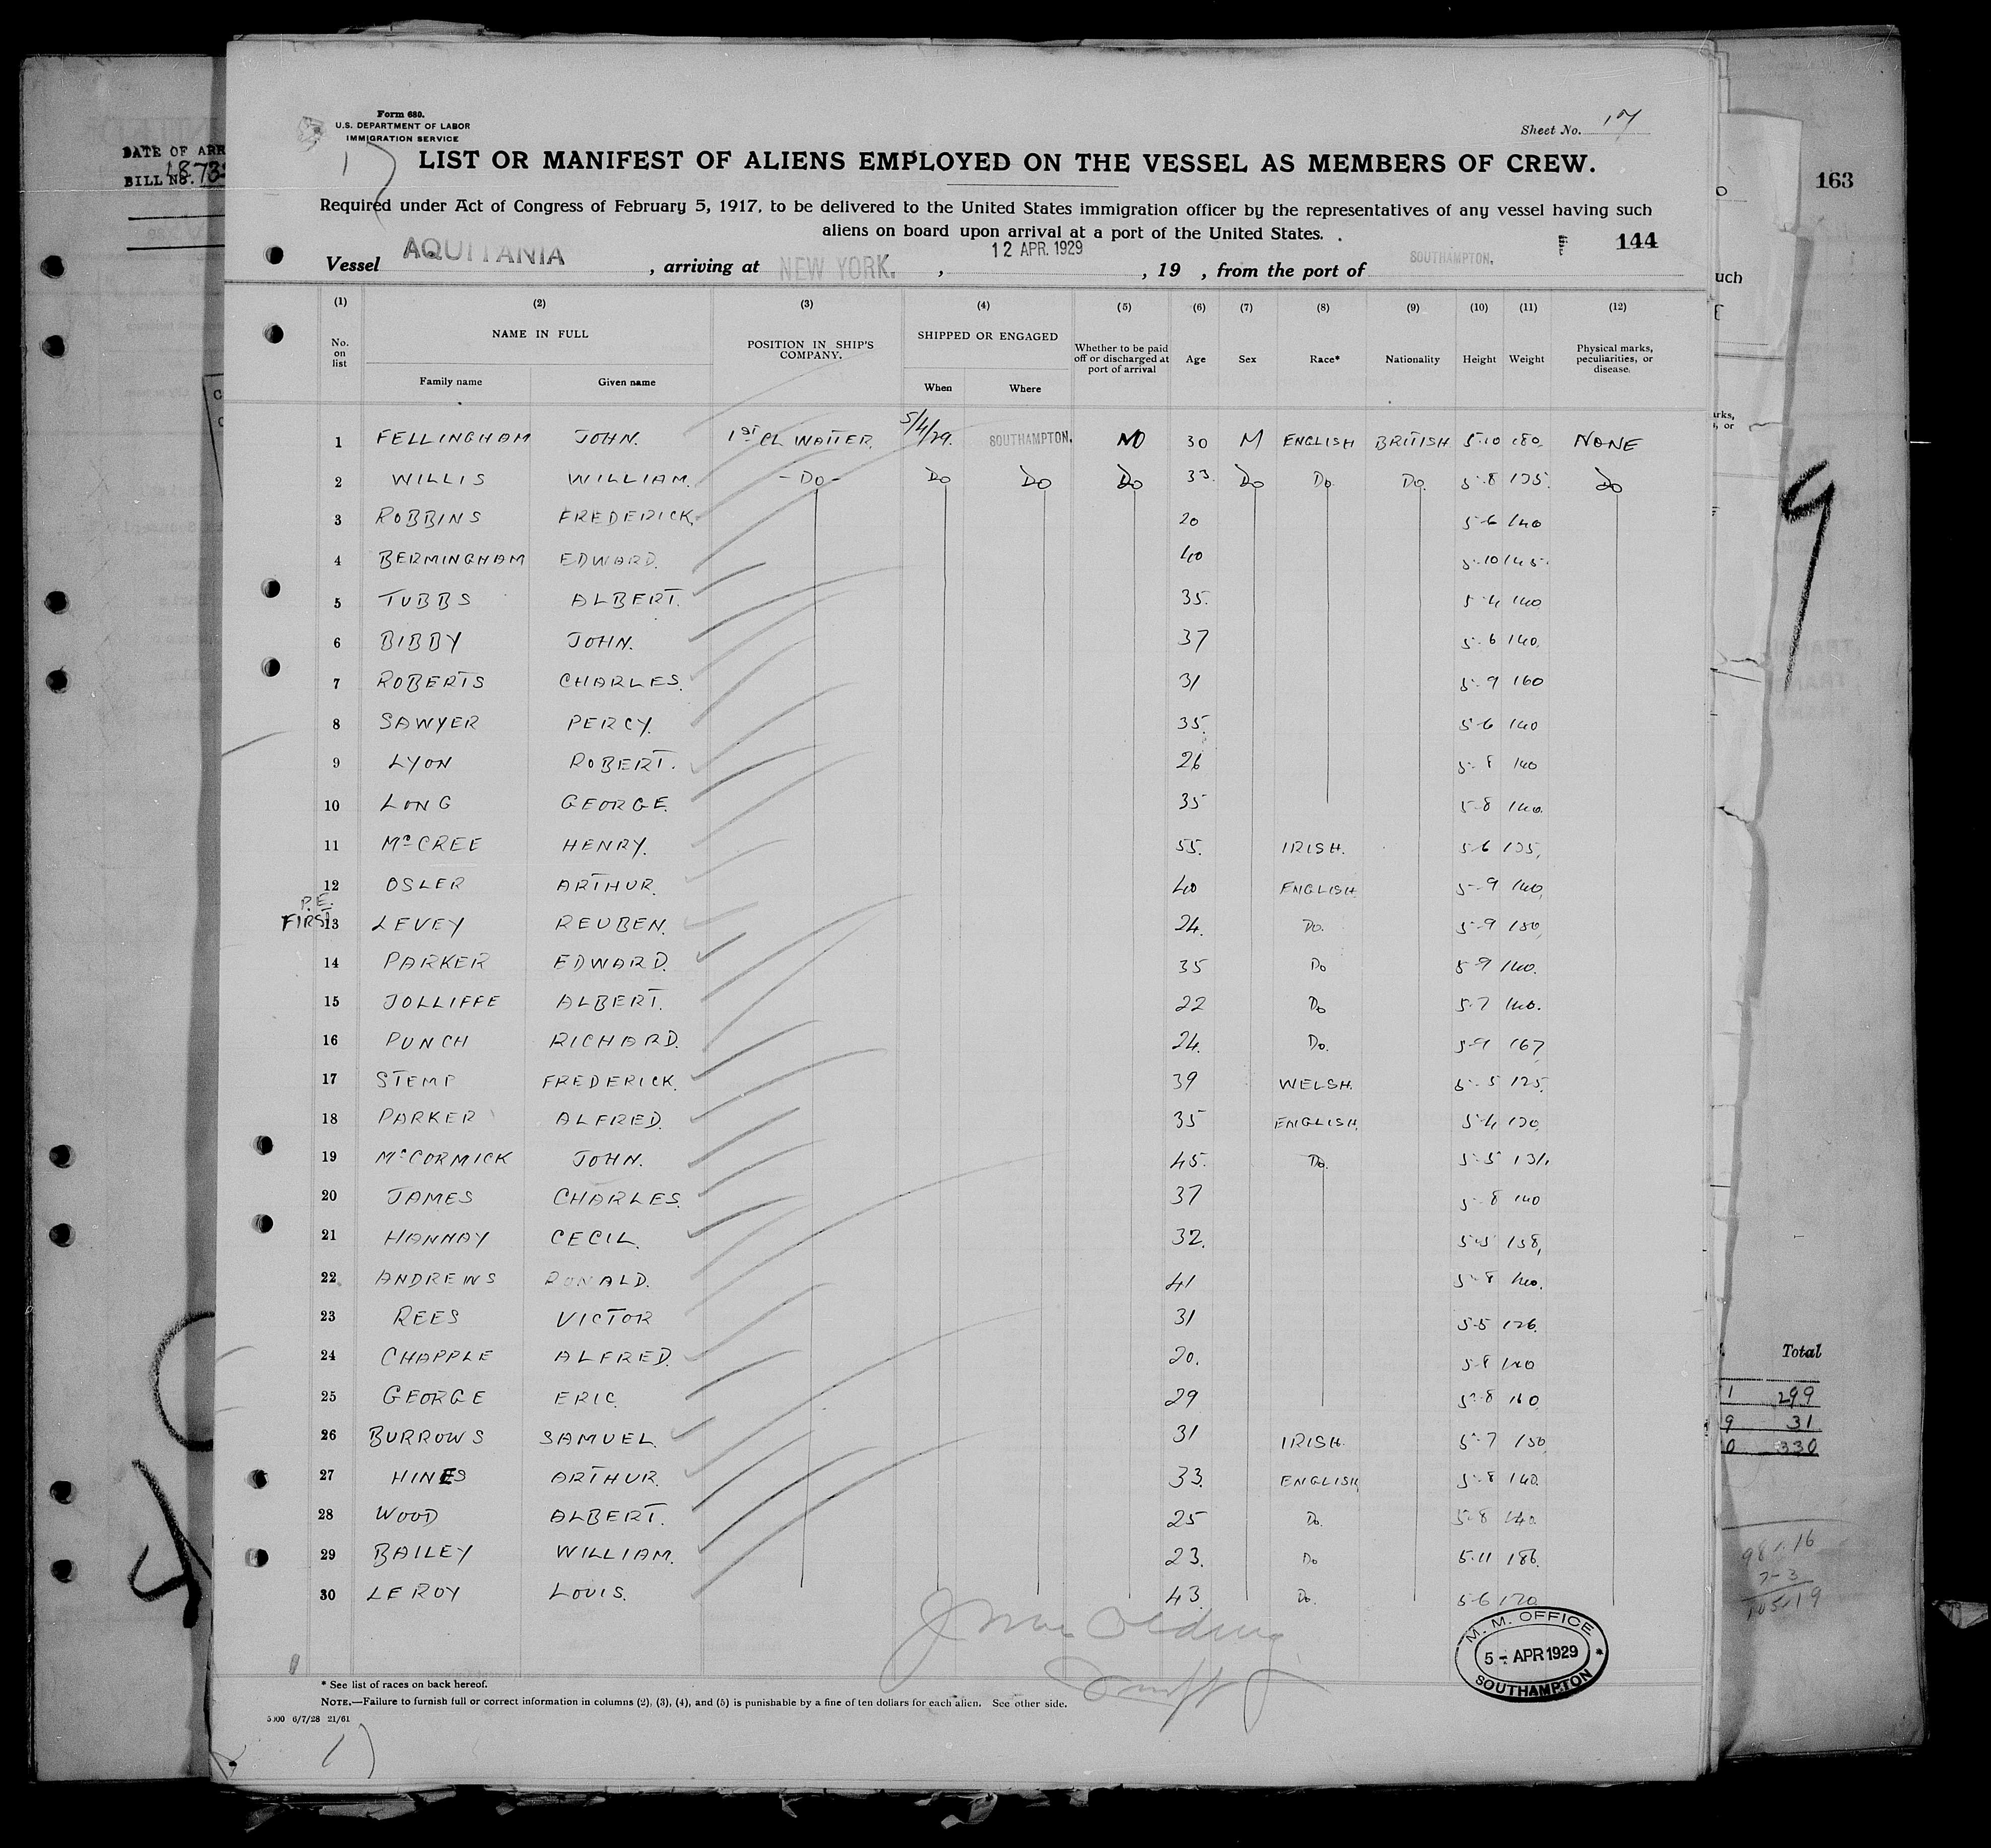 DATE OF ARR
BILL NO. 1873
Form 680.
U.S. DEPARTMENT OF LABOR
IMMIGRATION SERVICE
Sheet No. 17
17
LIST OR MANIFEST OF ALIENS EMPLOYED ON THE VESSEL AS MEMBERS OF CREW.
163
Required under Act of Congress of February 5, 1917, to be delivered to the United States immigration officer by the representatives of any vessel having such
aliens on board upon arrival at a port of the United States.
144
Vessel AQUITANIA, arriving at NEW YORK., 12 APR. 1929, 19 , from the port of SOUTHAMPTON.
uch
(1) (2) (3) (4) (5) (6) (7) (8) (9) (10) (11) (12)
No. on list NAME IN FULL POSITION IN SHIP'S COMPANY. SHIPPED OR ENGAGED Whether to be paid off or discharged at port of arrival Age Sex Race* Nationality Height Weight Physical marks, peculiarities, or disease.
Family name Given name When Where
1 FELLINGHAM JOHN. 1ST CL WAITER. 5/4/29. SOUTHAMPTON. NO 30 M ENGLISH BRITISH 5-10 180 NONE
2 WILLIS WILLIAM. - DO - DO DO DO 33. DO DO. DO. 5-8 135. DO
3 ROBBINS FREDERICK. 20 5-6 140
4 BERMINGHAM EDWARD. 40 5-10 145.
5 TUBBS ALBERT. 35. 5-4 140
6 BIBBY JOHN. 37 5-6 140.
7 ROBERTS CHARLES. 31 5-9 160
8 SAWYER PERCY. 35. 5-6 140
9 LYON ROBERT. 26 5-8 140
10 LONG GEORGE. 35 5-8 140.
11 McCREE HENRY. 55. IRISH. 5-6 135.
12 OSLER ARTHUR. 40 ENGLISH 5-9 140,
P.E. FIRST
13 LEVEY REUBEN. 24. DO. 5-9 150,
14 PARKER EDWARD. 35 DO 5-9 140.
15 JOLLIFFE ALBERT. 22 DO 5-7 140.
16 PUNCH RICHARD. 24. DO. 5-9 167
17 STEMP FREDERICK. 39 WELSH. 5-5 125.
18 PARKER ALFRED. 35 ENGLISH. 5-4 130,
19 McCORMICK JOHN. 45. DO. 5-5 131.
20 JAMES CHARLES. 37 5-8 140
21 HANNAY CECIL. 32. 5-5 158,
22 ANDREWS RONALD. 41 5-8 140.
23 REES VICTOR 31 5-5 126.
24 CHAPPLE ALFRED. 20. 5-8 140
25 GEORGE ERIC. 29 5-8 160
26 BURROWS SAMUEL. 31 IRISH. 5-7 150
27 HINES ARTHUR. 33. ENGLISH 5-8 140.
28 WOOD ALBERT. 25 DO. 5-8 140
29 BAILEY WILLIAM. 23. DO 5-11 186.
30 LEROY LOUIS. 43. DO. 5-6 170
Total
1 299
9 31
0 330
M. M. OFFICE
5 - APR 1929
SOUTHAMPTON
* See list of races on back hereof.
NOTE.—Failure to furnish full or correct information in columns (2), (3), (4), and (5) is punishable by a fine of ten dollars for each alien. See other side.
5000 6/7/28 21/61